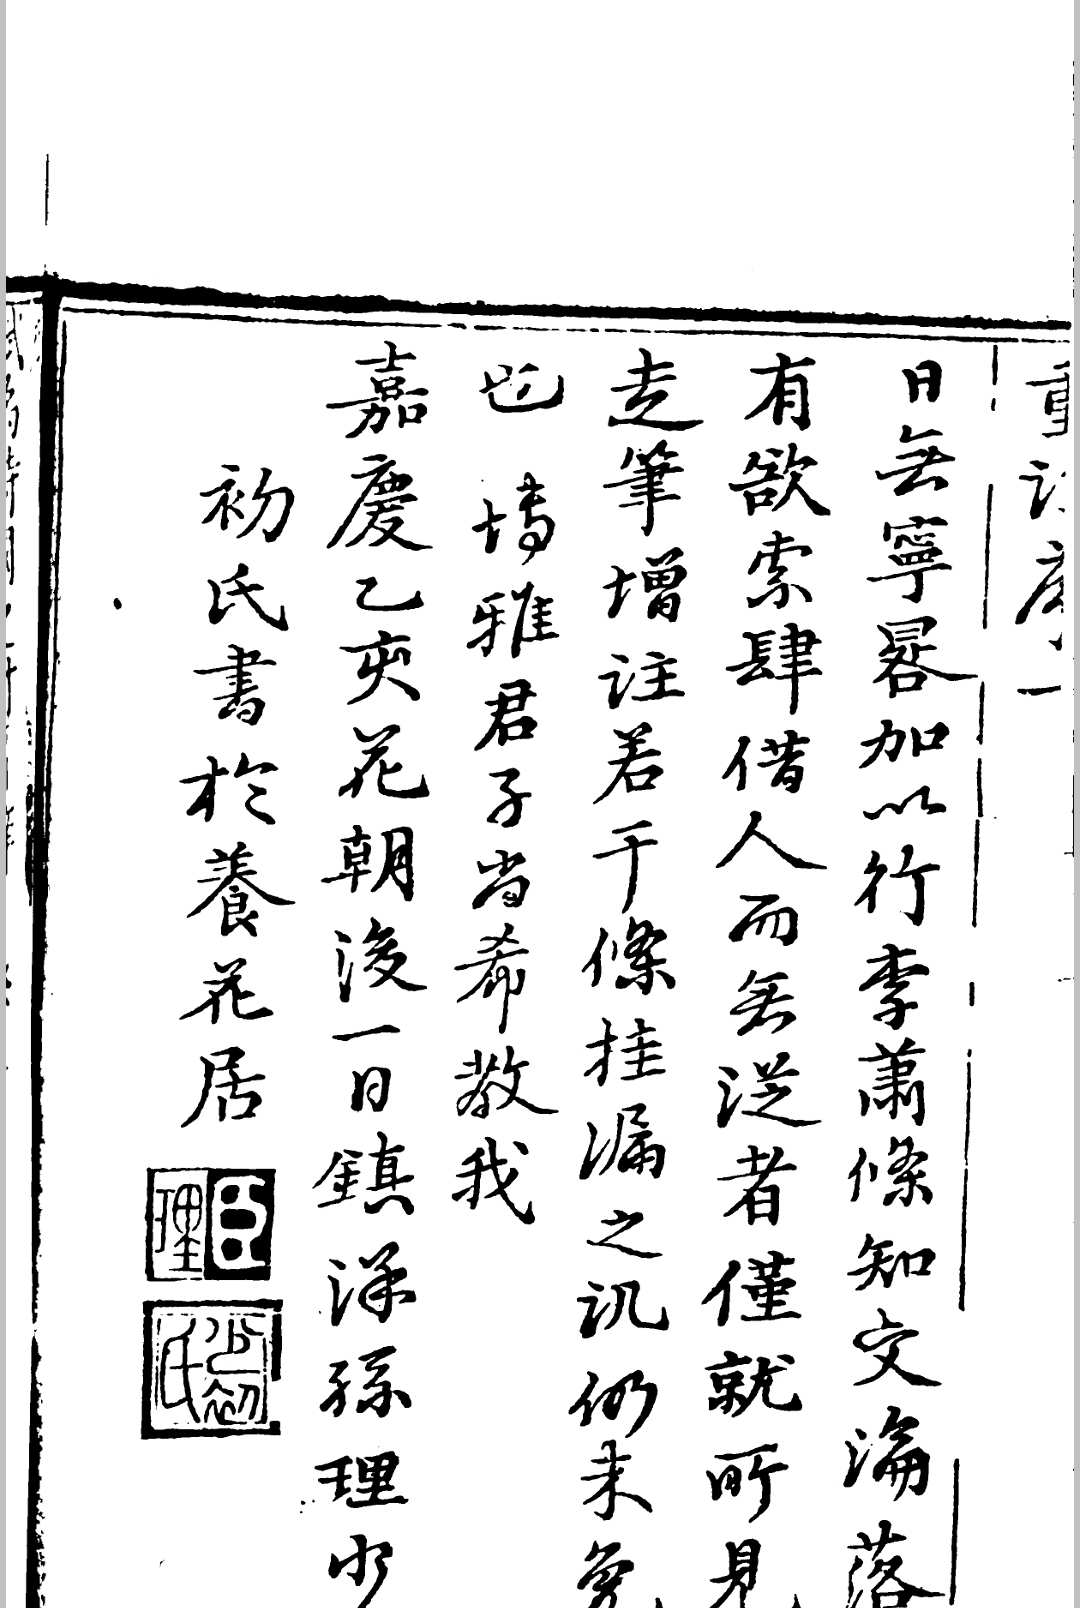 日無寧晷加以行李蕭條知交淪落
有欲索肆借人而無從者僅就所見
走筆增註若干條挂漏之訊仍未免
也 博雅君子尚希教我
嘉慶乙亥花朝後一日鎮洋孫理少
初氏書於養花居
臣理
少初氏